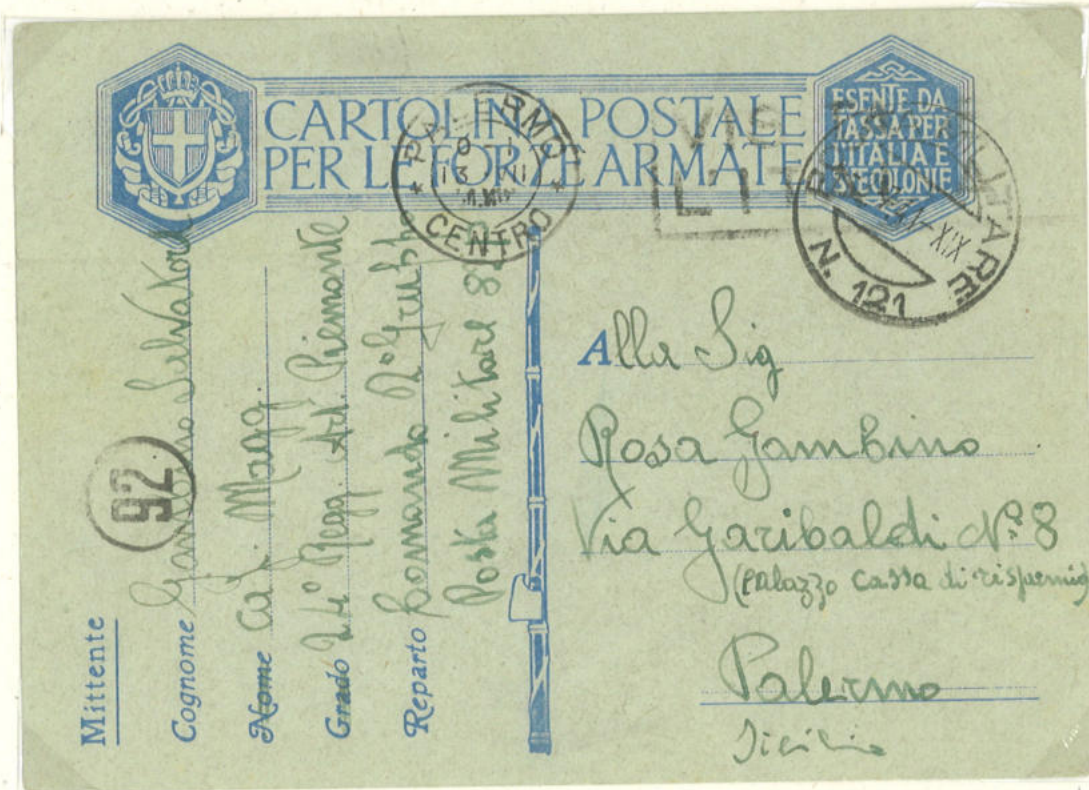 CARTOLINA POSTALE
PER LE FORZE ARMATE
ESENTE DA
TASSA PER
L'ITALIA E
SUE COLONIE
PALERMO
CENTRO
POSTA MILITARE
N. 121
XIX
92
Mittente
Cognome Gambino Salvatore
Nome Magg.
Grado 24º Regg. Art. Piemonte
Reparto Comando 2º Gruppo
Posta Militare
Alla Sig
Rosa Gambino
Via Garibaldi Nº 8
(Palazzo cassa di risparmio
Palermo
Sicilia